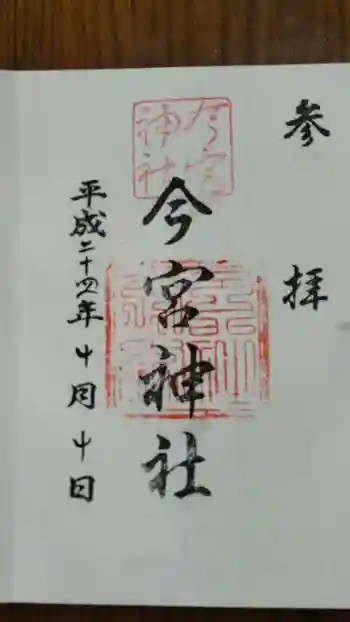 参拝
今宮神社
今宮
神社
平成二十四年十月十日